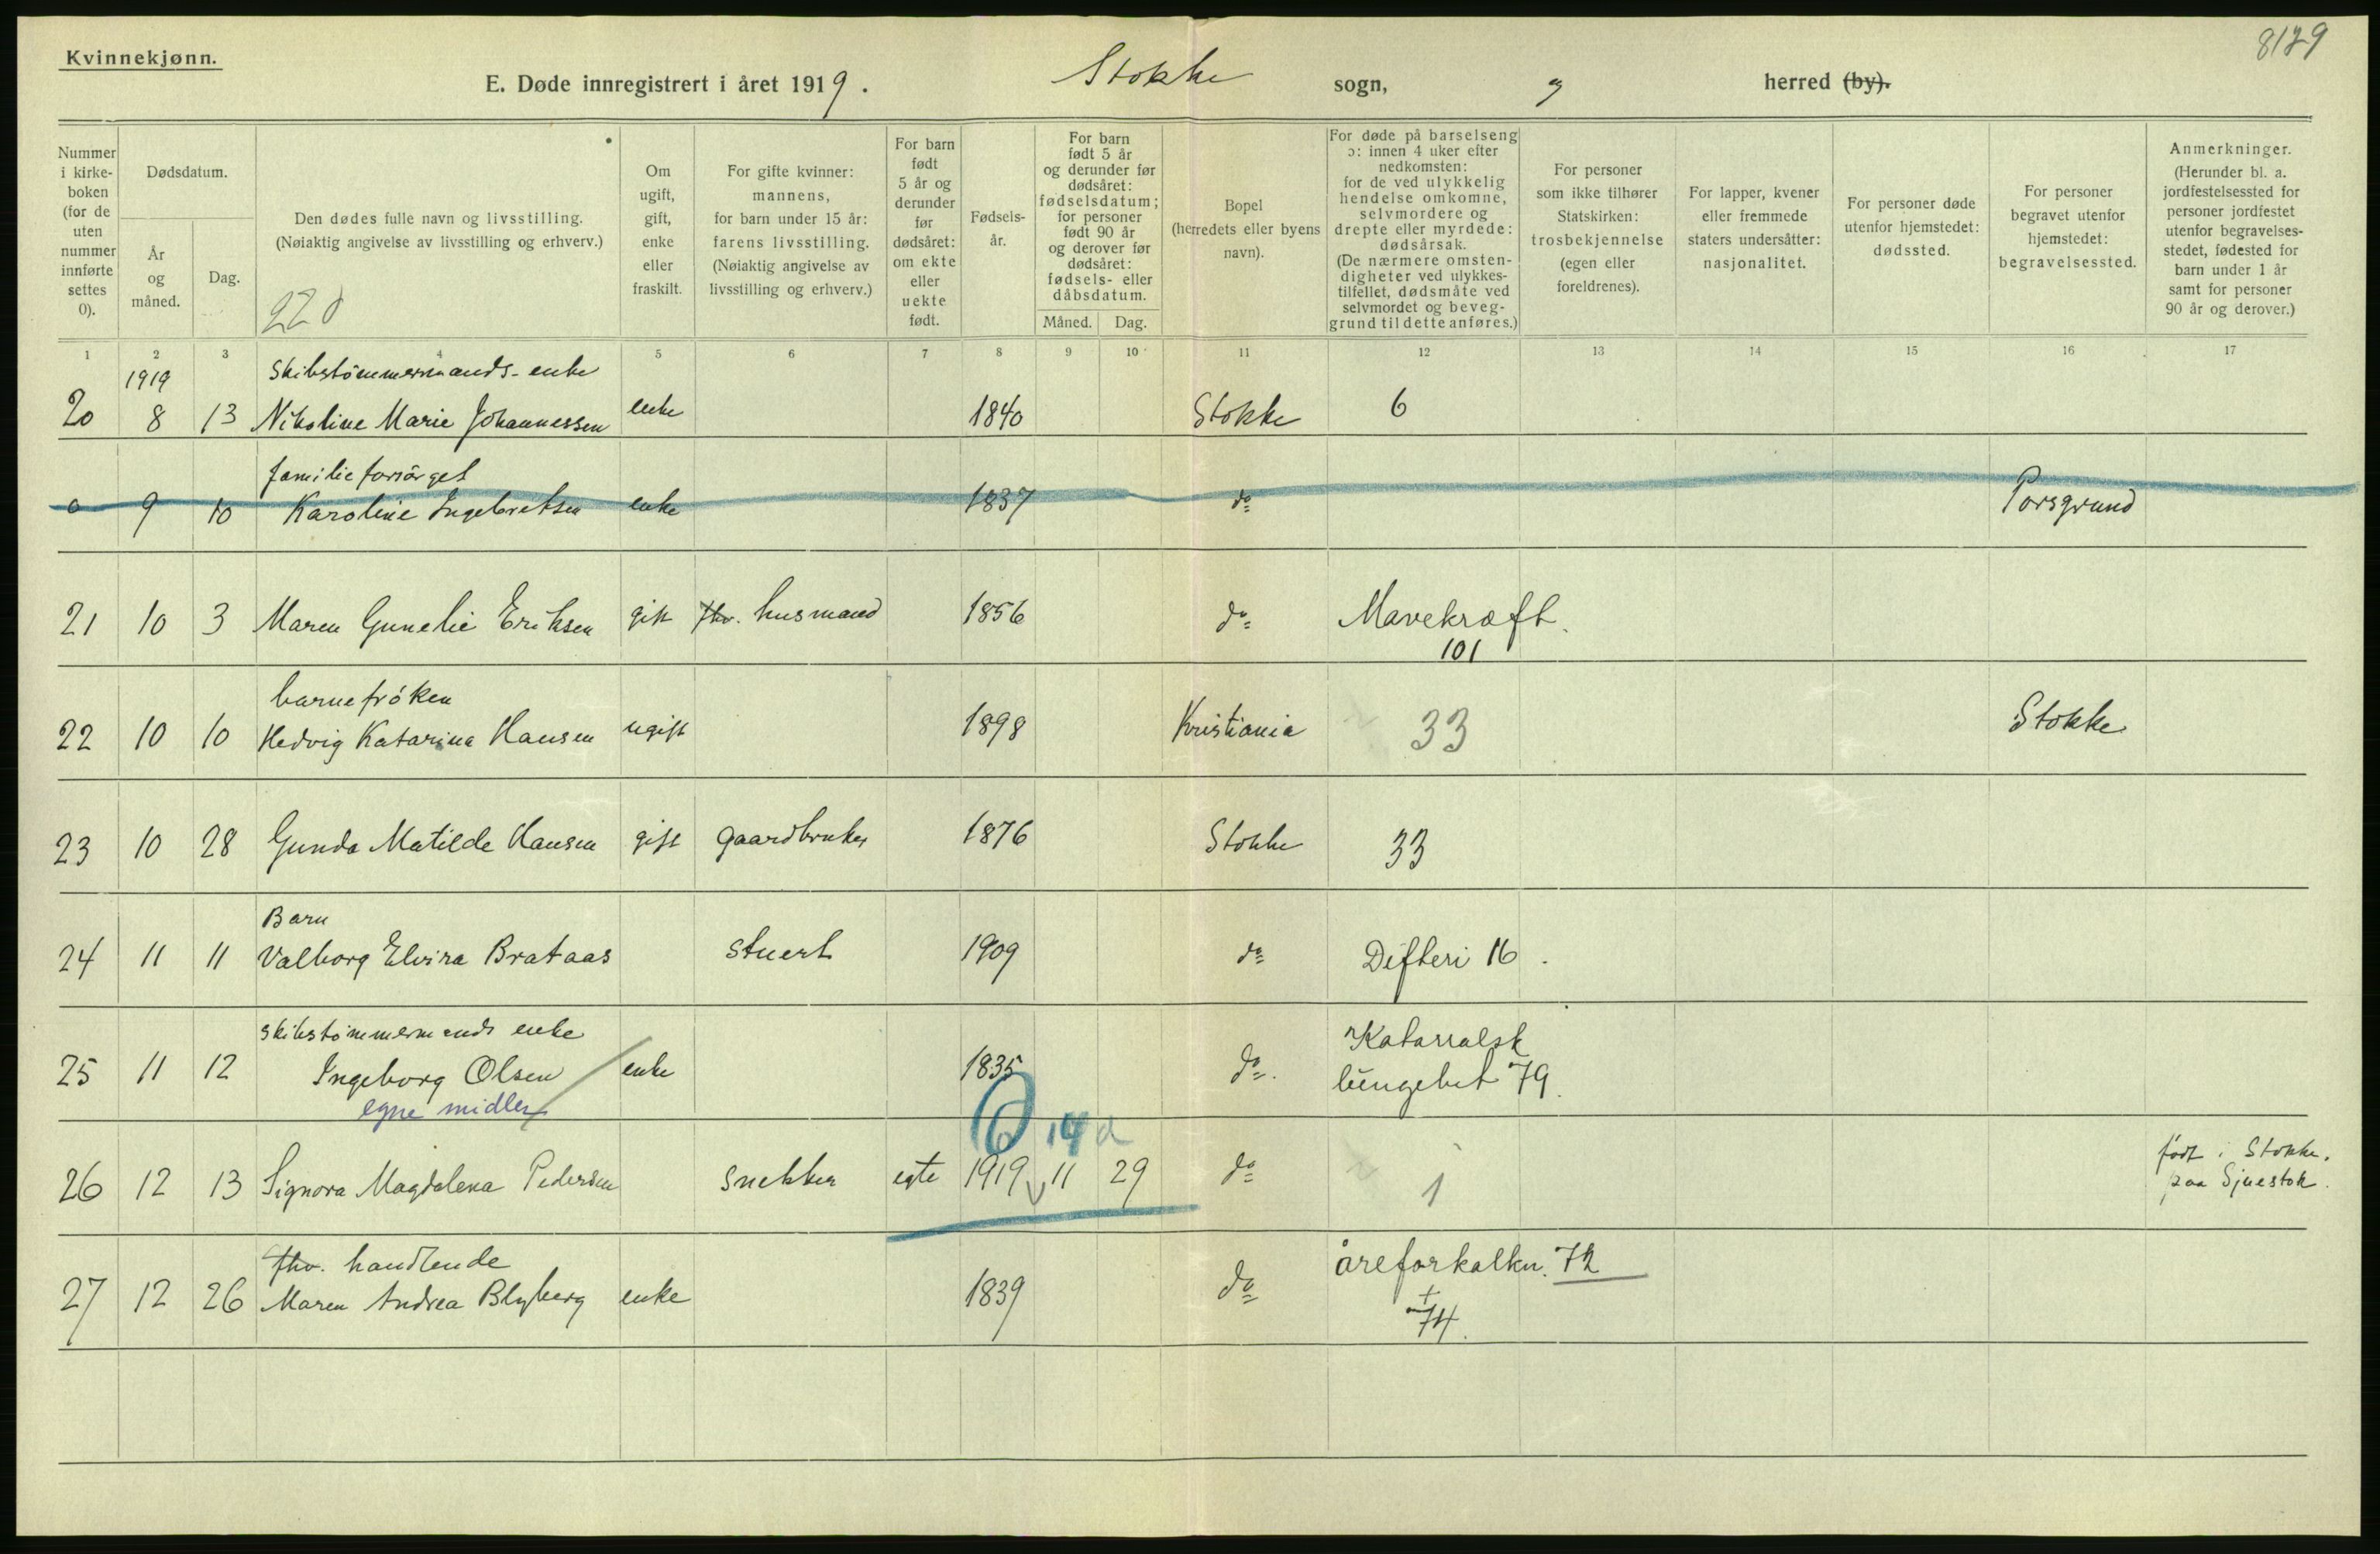 Kvinnekjønn.
8129
E. Døde innregistrert i året 1919. Stokke sogn, herred (by).
Nummer i kirke-boken (for de uten nummer innførte settes 0).
Dødsdatum.
År og måned.
Dag.
Den dødes fulle navn og livsstilling.
(Nøiaktig angivelse av livsstilling og erhverv.)
Om ugift, gift, enke eller fraskilt.
For gifte kvinner: mannens, for barn under 15 år: farens livsstilling. (Nøiaktig angivelse av livsstilling og erhverv.)
For barn født 5 år og derunder før dødsåret: om ekte eller uekte født.
Fødsels-år.
For barn født 5 år og derunder før dødsåret: fødselsdatum; for personer født 90 år og derover før dødsåret: fødsels- eller dåbsdatum.
Måned. Dag.
Bopel (herredets eller byens navn).
For døde på barselseng ɔ: innen 4 uker efter nedkomsten: for de ved ulykkelig hendelse omkomne, selvmordere og drepte eller myrdede: dødsårsak. (De nærmere omsten-digheter ved ulykkes-tilfellet, dødsmåte ved selvmordet og beveg-grund til dette anføres.)
For personer som ikke tilhører Statskirken: trosbekjennelse (egen eller foreldrenes).
For lapper, kvener eller fremmede staters undersåtter: nasjonalitet.
For personer døde utenfor hjemstedet: dødssted.
For personer begravet utenfor hjemstedet: begravelsessted.
Anmerkninger. (Herunder bl. a. jordfestelsessted for personer jordfestet utenfor begravelses-stedet, fødested for barn under 1 år samt for personer 90 år og derover.)
1 2 3 4 5 6 7 8 9 10 11 12 13 14 15 16 17
1919 Skibstömmermands-enke
20 8 13 Nikoline Marie Johannessen enke 1840 Stokke 6
familieforsörget
0 9 10 Karoline Ingebretsen enke 1837 do Porsgrund
21 10 3 Maren Gunelie Eriksen gift fhv. husmand 1856 do Mavekræft.
101
barnefröken
22 10 10 Hedvig Katarina Hansen ugift 1898 Kristiania 33 Stokke
23 10 28 Gunda Matilde Hansen gift gaardbruker 1876 Stokke 33
Barn
24 11 11 Valborg Elvira Brataas Stuert 1909 do Difteri 16.
Skibstömmermands enke Katarralsk
25 11 12 Ingeborg Olsen enke 1835 do. lungebet 79.
egne midler
14 d
26 12 13 Signora Magdalena Pedersen Snekker egte 1919 11 29 do 1 født i Stokke.
paa Sjuestok.
fhv. handlende åreforkalkn. 72
27 12 26 Maren Andrea Blyberg enke 1839 do + 74.